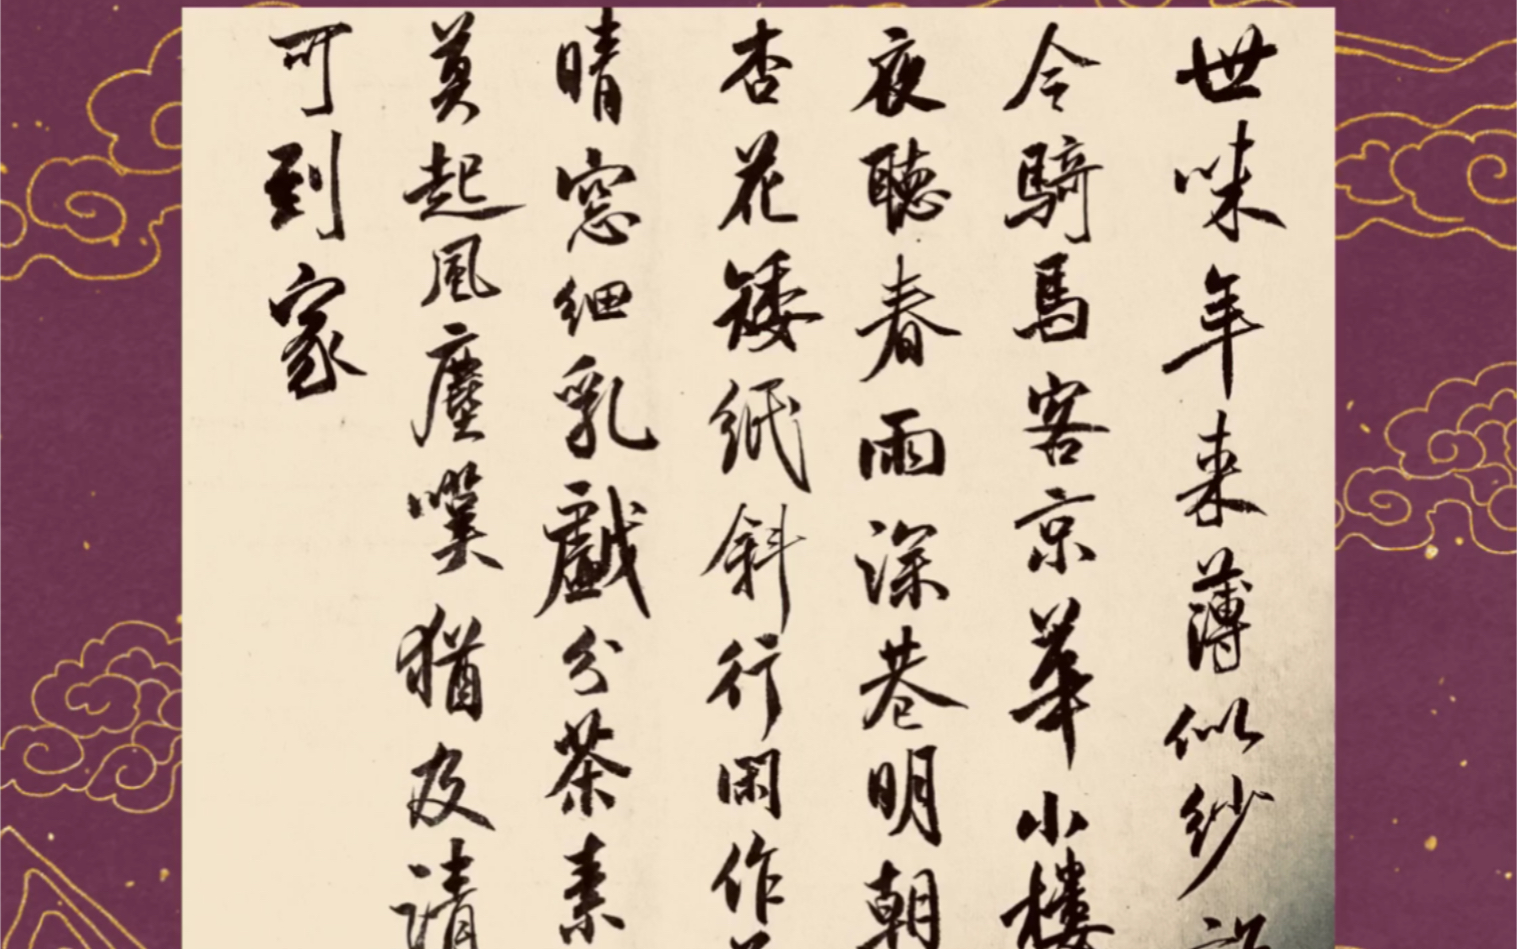 世味年来薄似紗
令騎馬客京華小樓
夜聽春雨深巷明朝
杏花矮紙斜行閑作
晴窓細乳戲分茶素
莫起風塵嘆猶及清
可到家